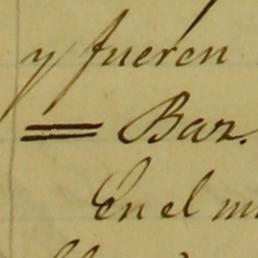 y fueren
= Bar.
En el